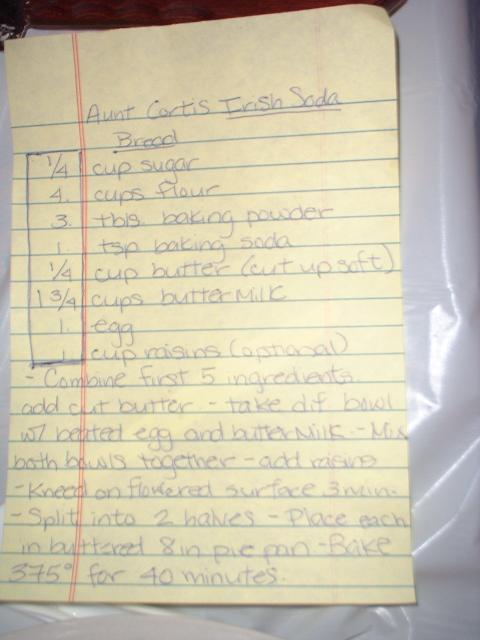 Aunt Cortis Irish Soda
Bread
1/4 cup sugar
4. cups flour
3. tbls. baking powder
1. tsp baking soda
1/4 cup butter (cut up soft)
1 3/4 cups butter Milk
1. egg
1. cup raisins (optional)
- Combine first 5 ingredients.
add cut butter - take dif bowl
w/ beated egg and butter Milk - Mix
both bowls together - add raisins
- Knead on flowered surface 3 min.
- Split into 2 halves - Place each
in buttered 8 in pie pan - Bake
375° for 40 minutes.